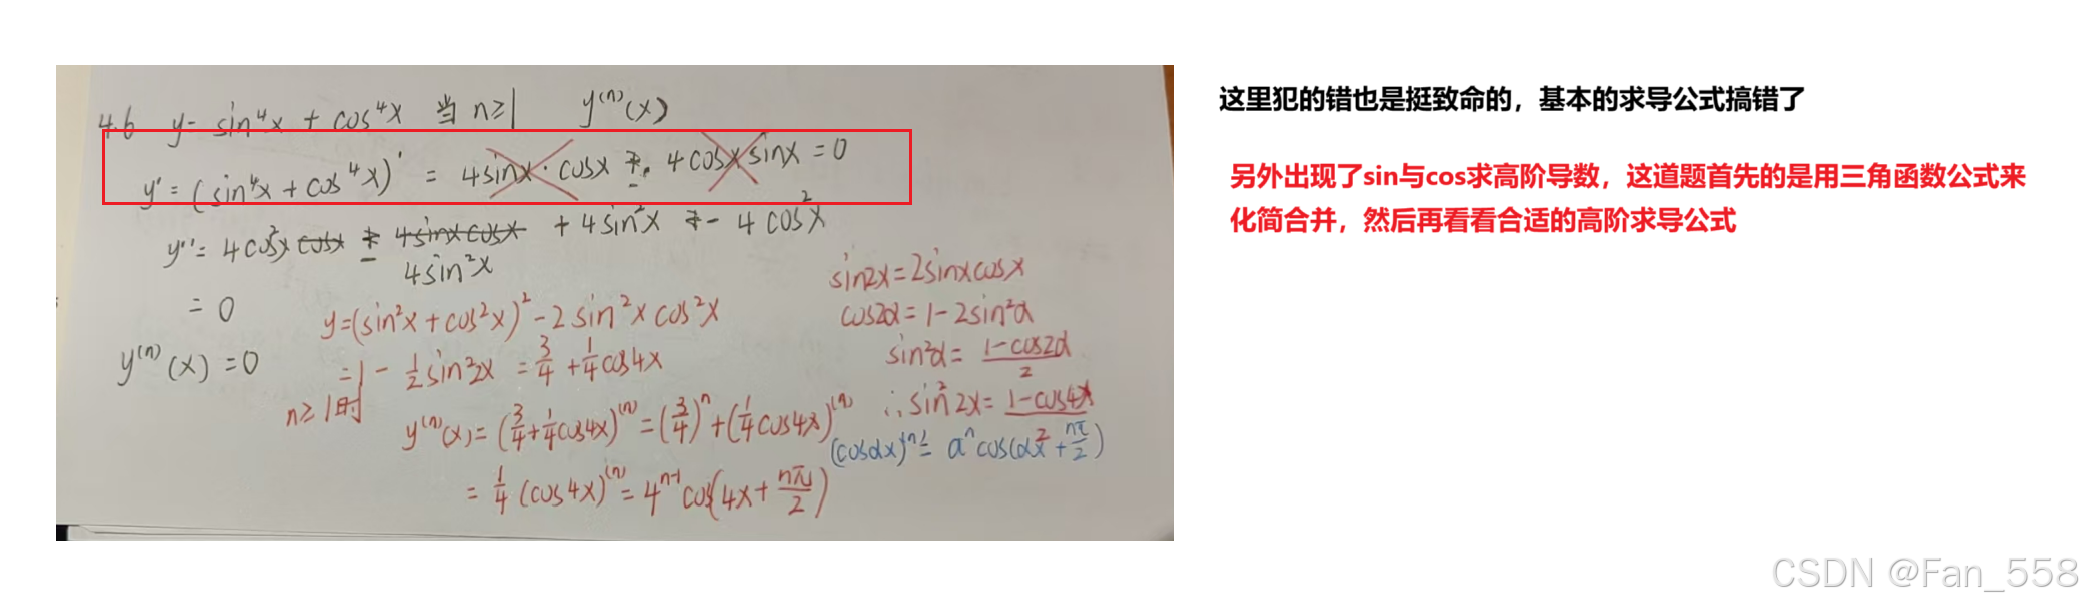 4.6 y= sin⁴x + cos⁴x 当 n≥1 y⁽ⁿ⁾(x)
y' = (sin⁴x + cos⁴x)' = 4sinx · cosx + 4cosx sinx = 0
y'' = 4cos²x cosx 4sinxcosx + 4sin²x - 4cos²x
4sin²x
= 0
y⁽ⁿ⁾(x) = 0
y=(sin²x + cos²x)² - 2 sin²x cos²x
= 1 - 1/2 sin²2x = 3/4 + 1/4 cos4x
n≥1时
y⁽ⁿ⁾(x) = (3/4 + 1/4 cos4x)⁽ⁿ⁾ = (3/4)ⁿ + (1/4 cos4x)⁽ⁿ⁾
= 1/4 (cos4x)⁽ⁿ⁾ = 4ⁿ⁻¹ cos(4x + nπ/2)
sin2x = 2sinxcosx
cos2α = 1 - 2sin²α
sin²α = 1-cos2α/2
∴ sin²2x = 1-cos4x
(cosαx)⁽ⁿ⁾ = aⁿ cos(αx + nπ/2)
这里犯的错也是挺致命的，基本的求导公式搞错了
另外出现了sin与cos求高阶导数，这道题首先的是用三角函数公式来
化简合并，然后再看看合适的高阶求导公式
CSDN @Fan_558